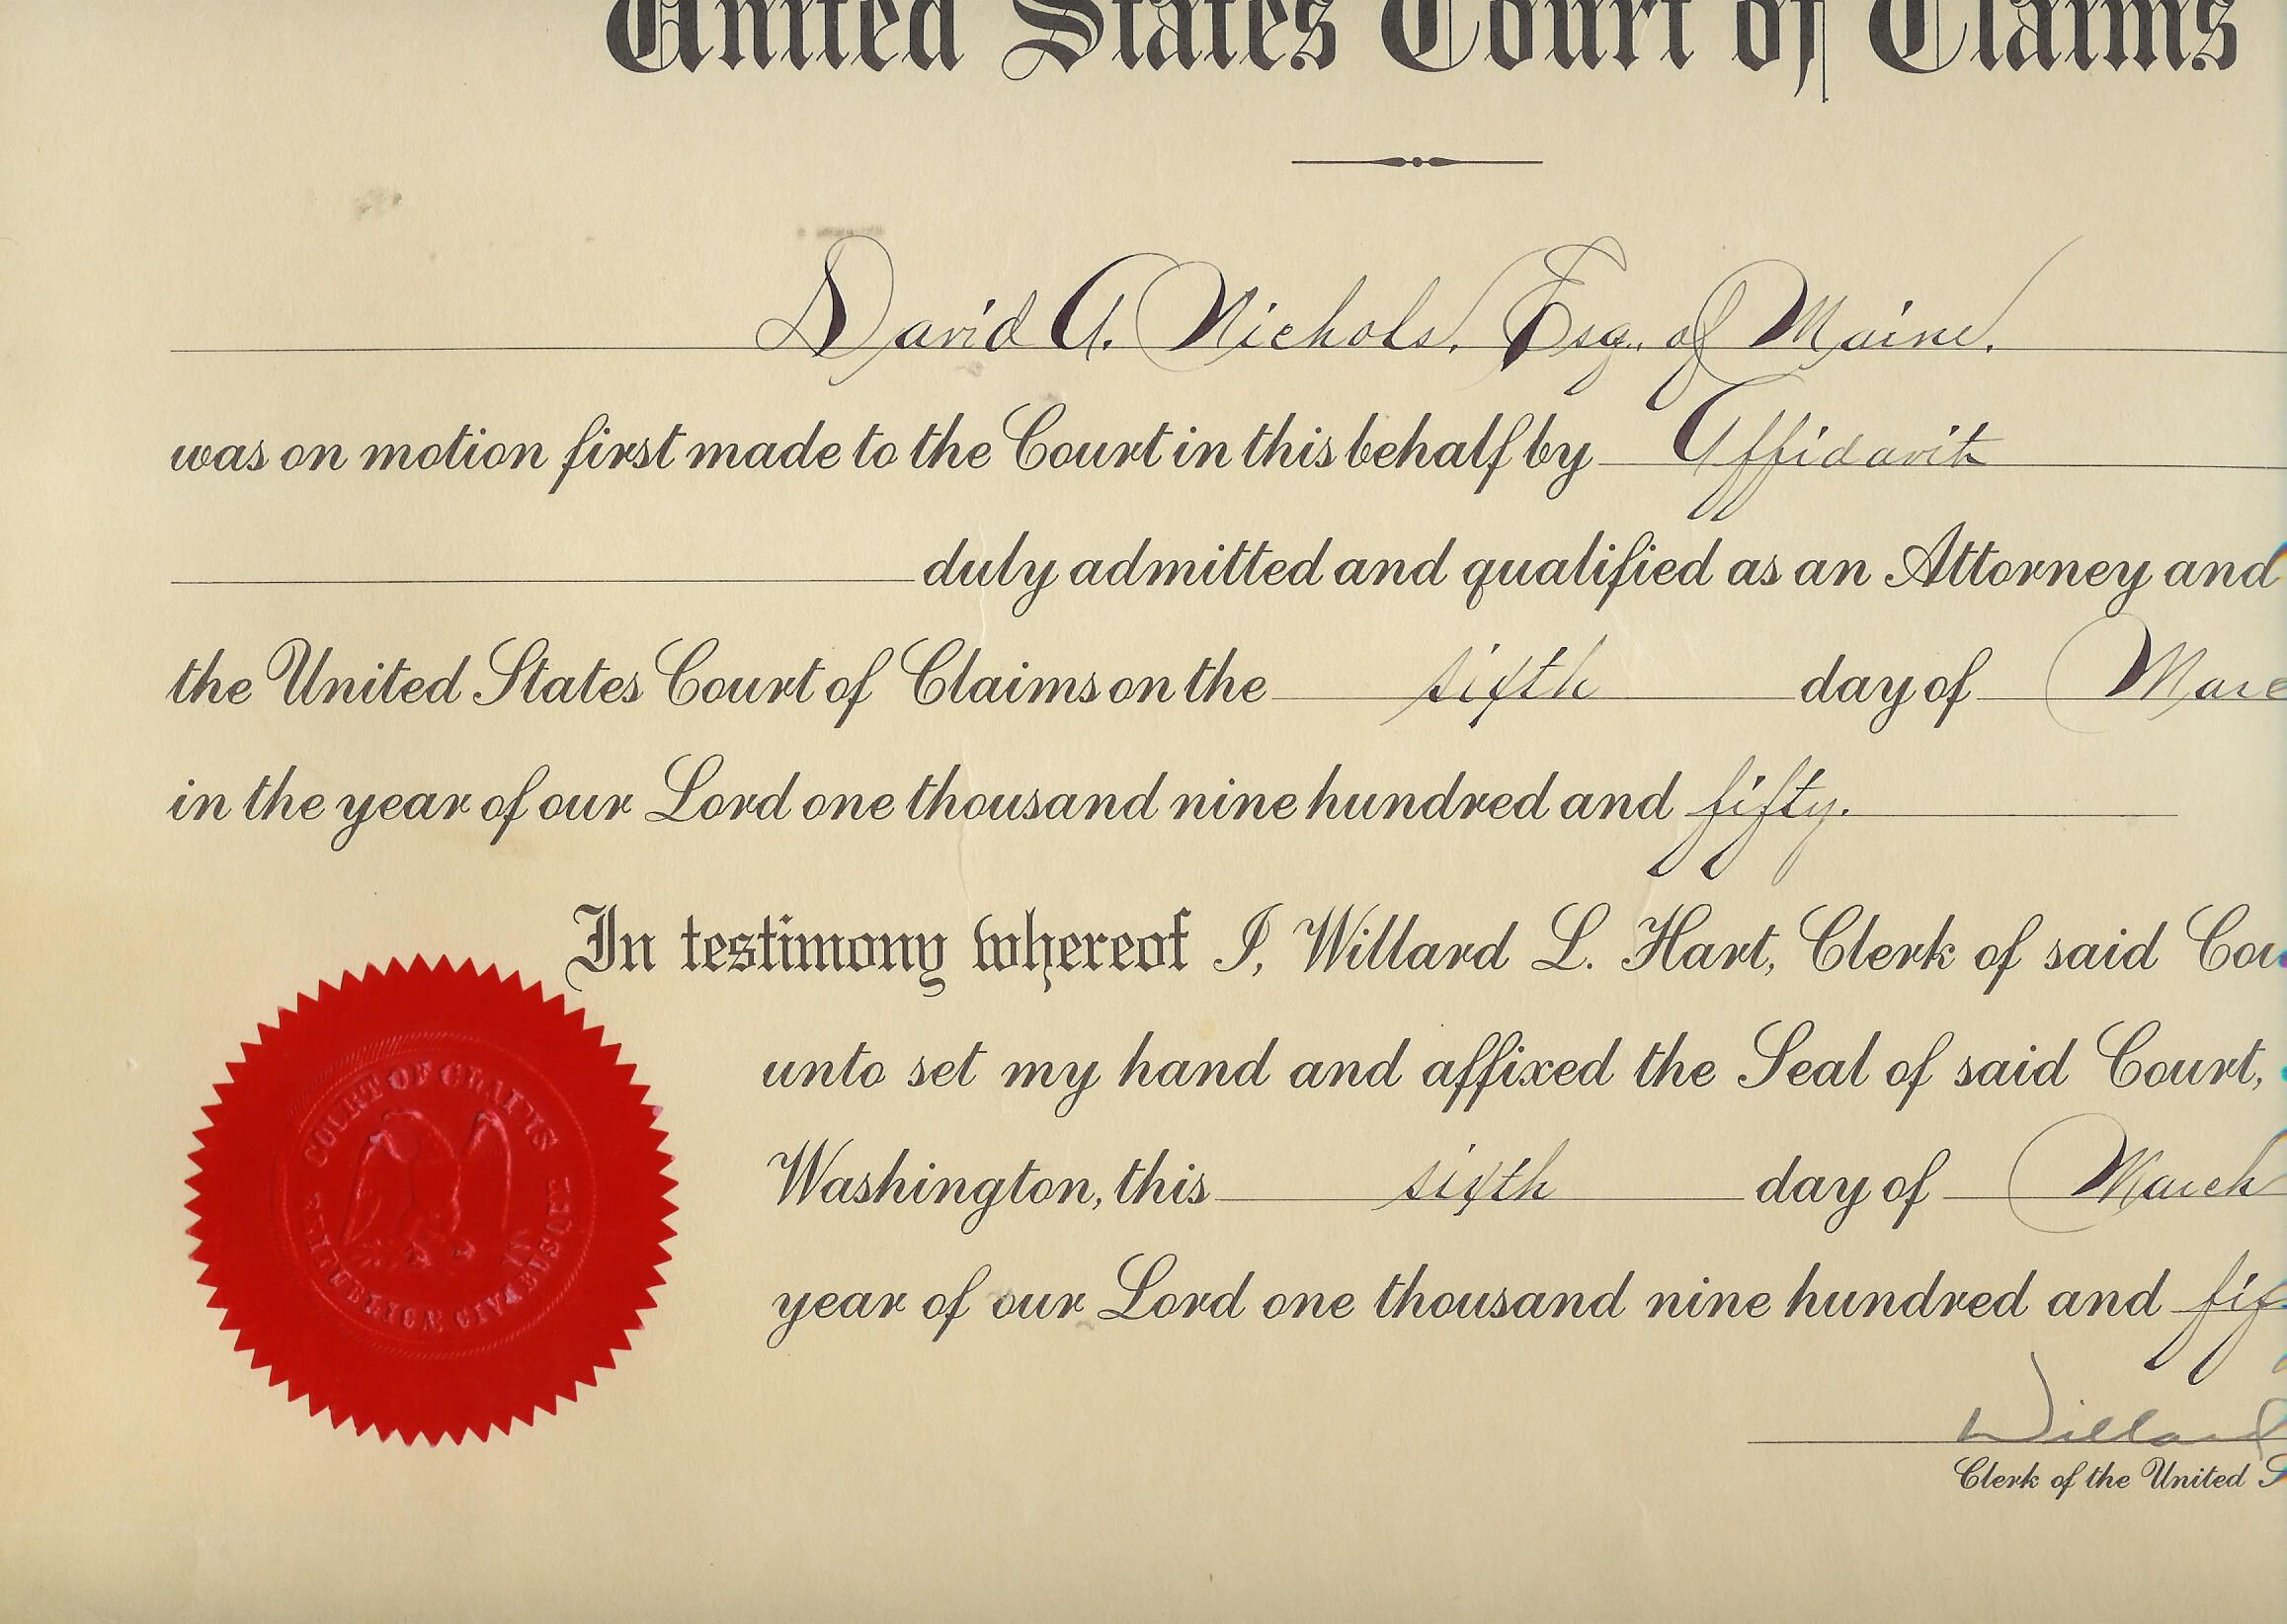 United States Court of Claims
David A. Nichols, Esq., of Maine.
was on motion first made to the Court in this behalf by Affidavit
duly admitted and qualified as an Attorney and
the United States Court of Claims on the sixth day of Marc
in the year of our Lord one thousand nine hundred and fifty.
In testimony whereof I, Willard L. Hart, Clerk of said Cou
unto set my hand and affixed the Seal of said Court,
Washington, this sixth day of March
year of our Lord one thousand nine hundred and fif
Willard
Clerk of the United S
COURT OF CLAIMS